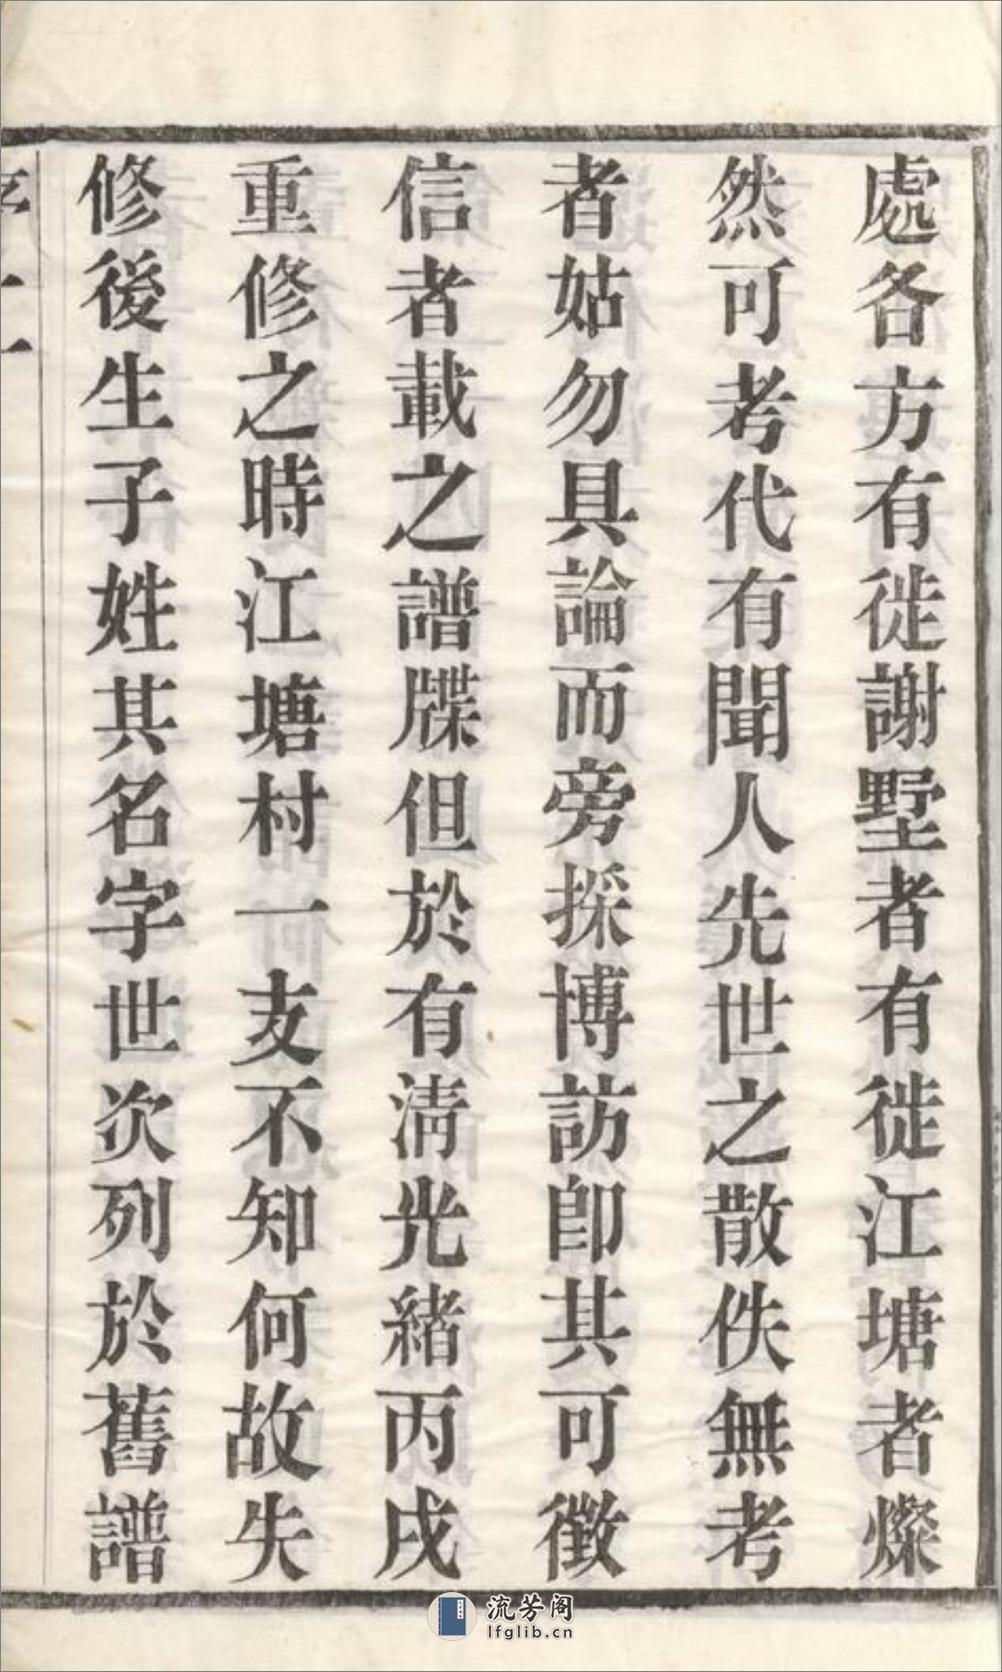 處各方有徙謝墅者有徙江塘者燦
然可考代有聞人先世之散佚無考
者姑勿具論而旁採博訪卽其可徵
信者載之譜牒但於有淸光緖丙戌
重修之時江塘村一支不知何故失
修後生子姓其名字世次列於舊譜
流芳阁
lfglib.cn